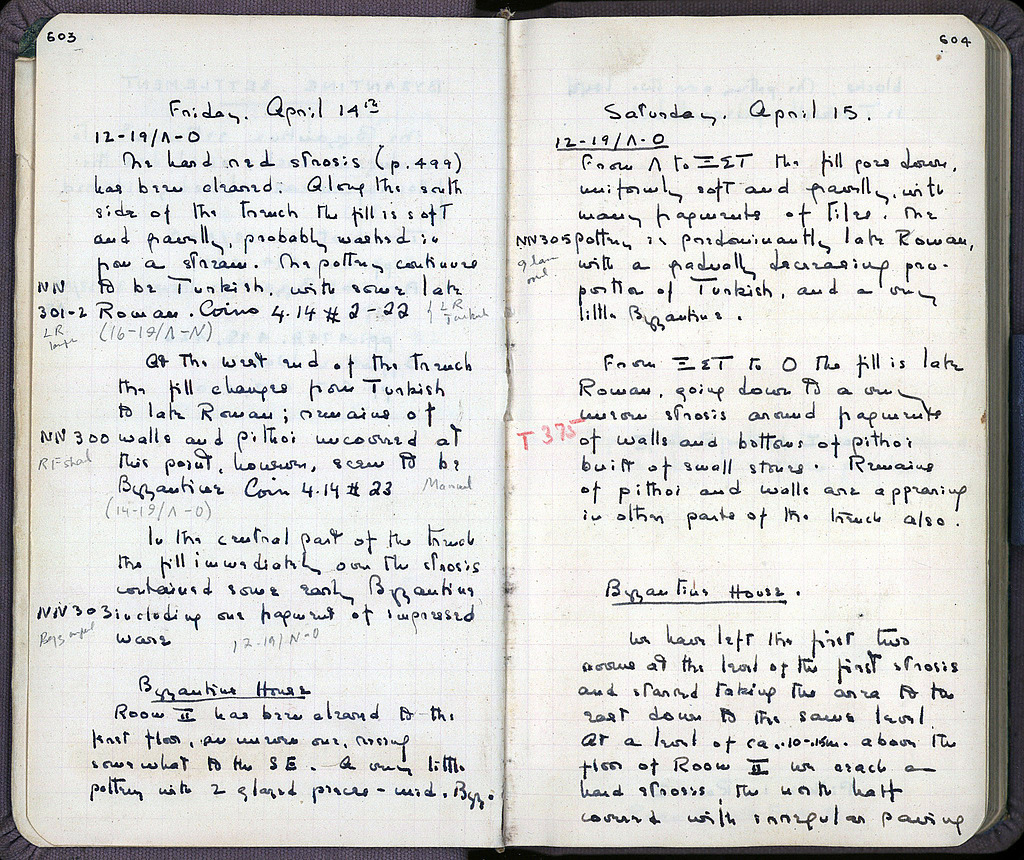 603
Friday. April 14th
12-19/Λ-Ο
The hard red strosis (p. 499)
has been cleaned. Along the south
side of the trench the fill is soft
and gravelly, probably washed in
from a stream. The pottery continues
NN to be Turkish, with some late
301-2 Roman. Coins 4.14 # 2-22 L R Turkish
L.R. (16-19/Λ-Ν)
lamp
At the west end of the trench
the fill changes from Turkish
to late Roman; remains of
NN 300 walls and pithoi uncovered at
this point, however, seem to be
Byzantine Coin 4.14 # 23 Manuel
(14-19/Λ-Ο)
In the central part of the trench
the fill immediately over the strosis
contained some early Byzantine,
NN 303 including one fragment of impressed
ware 12-19/Ν-Ο
Byzantine House
Room II has been cleared to the
first floor, an uneven one, rising
somewhat to the SE. A very little
pottery with 2 glazed pieces - mid. Byz.
604
Saturday. April 15.
12-19/Λ-Ο
From Λ to ΞΣΤ the fill goes down,
uniformly soft and gravelly, with
many fragments of tiles. The
NN 305 pottery is predominantly late Roman,
with a gradually decreasing pro-
portion of Turkish, and a very
little Byzantine.
From ΞΣΤ to Ο the fill is late
Roman, going down to a very
uneven strosis around fragments
T 375 of walls and bottoms of pithoi
built of small stones. Remains
of pithoi and walls are appearing
in other parts of the trench also.
Byzantine House.
We have left the first two
rooms at the level of the first strosis
and started taking the area to the
east down to the same level.
At a level of ca. .10-.15m. above the
floor of Room II we reach a
hard strosis, the north half
covered with irregular paving